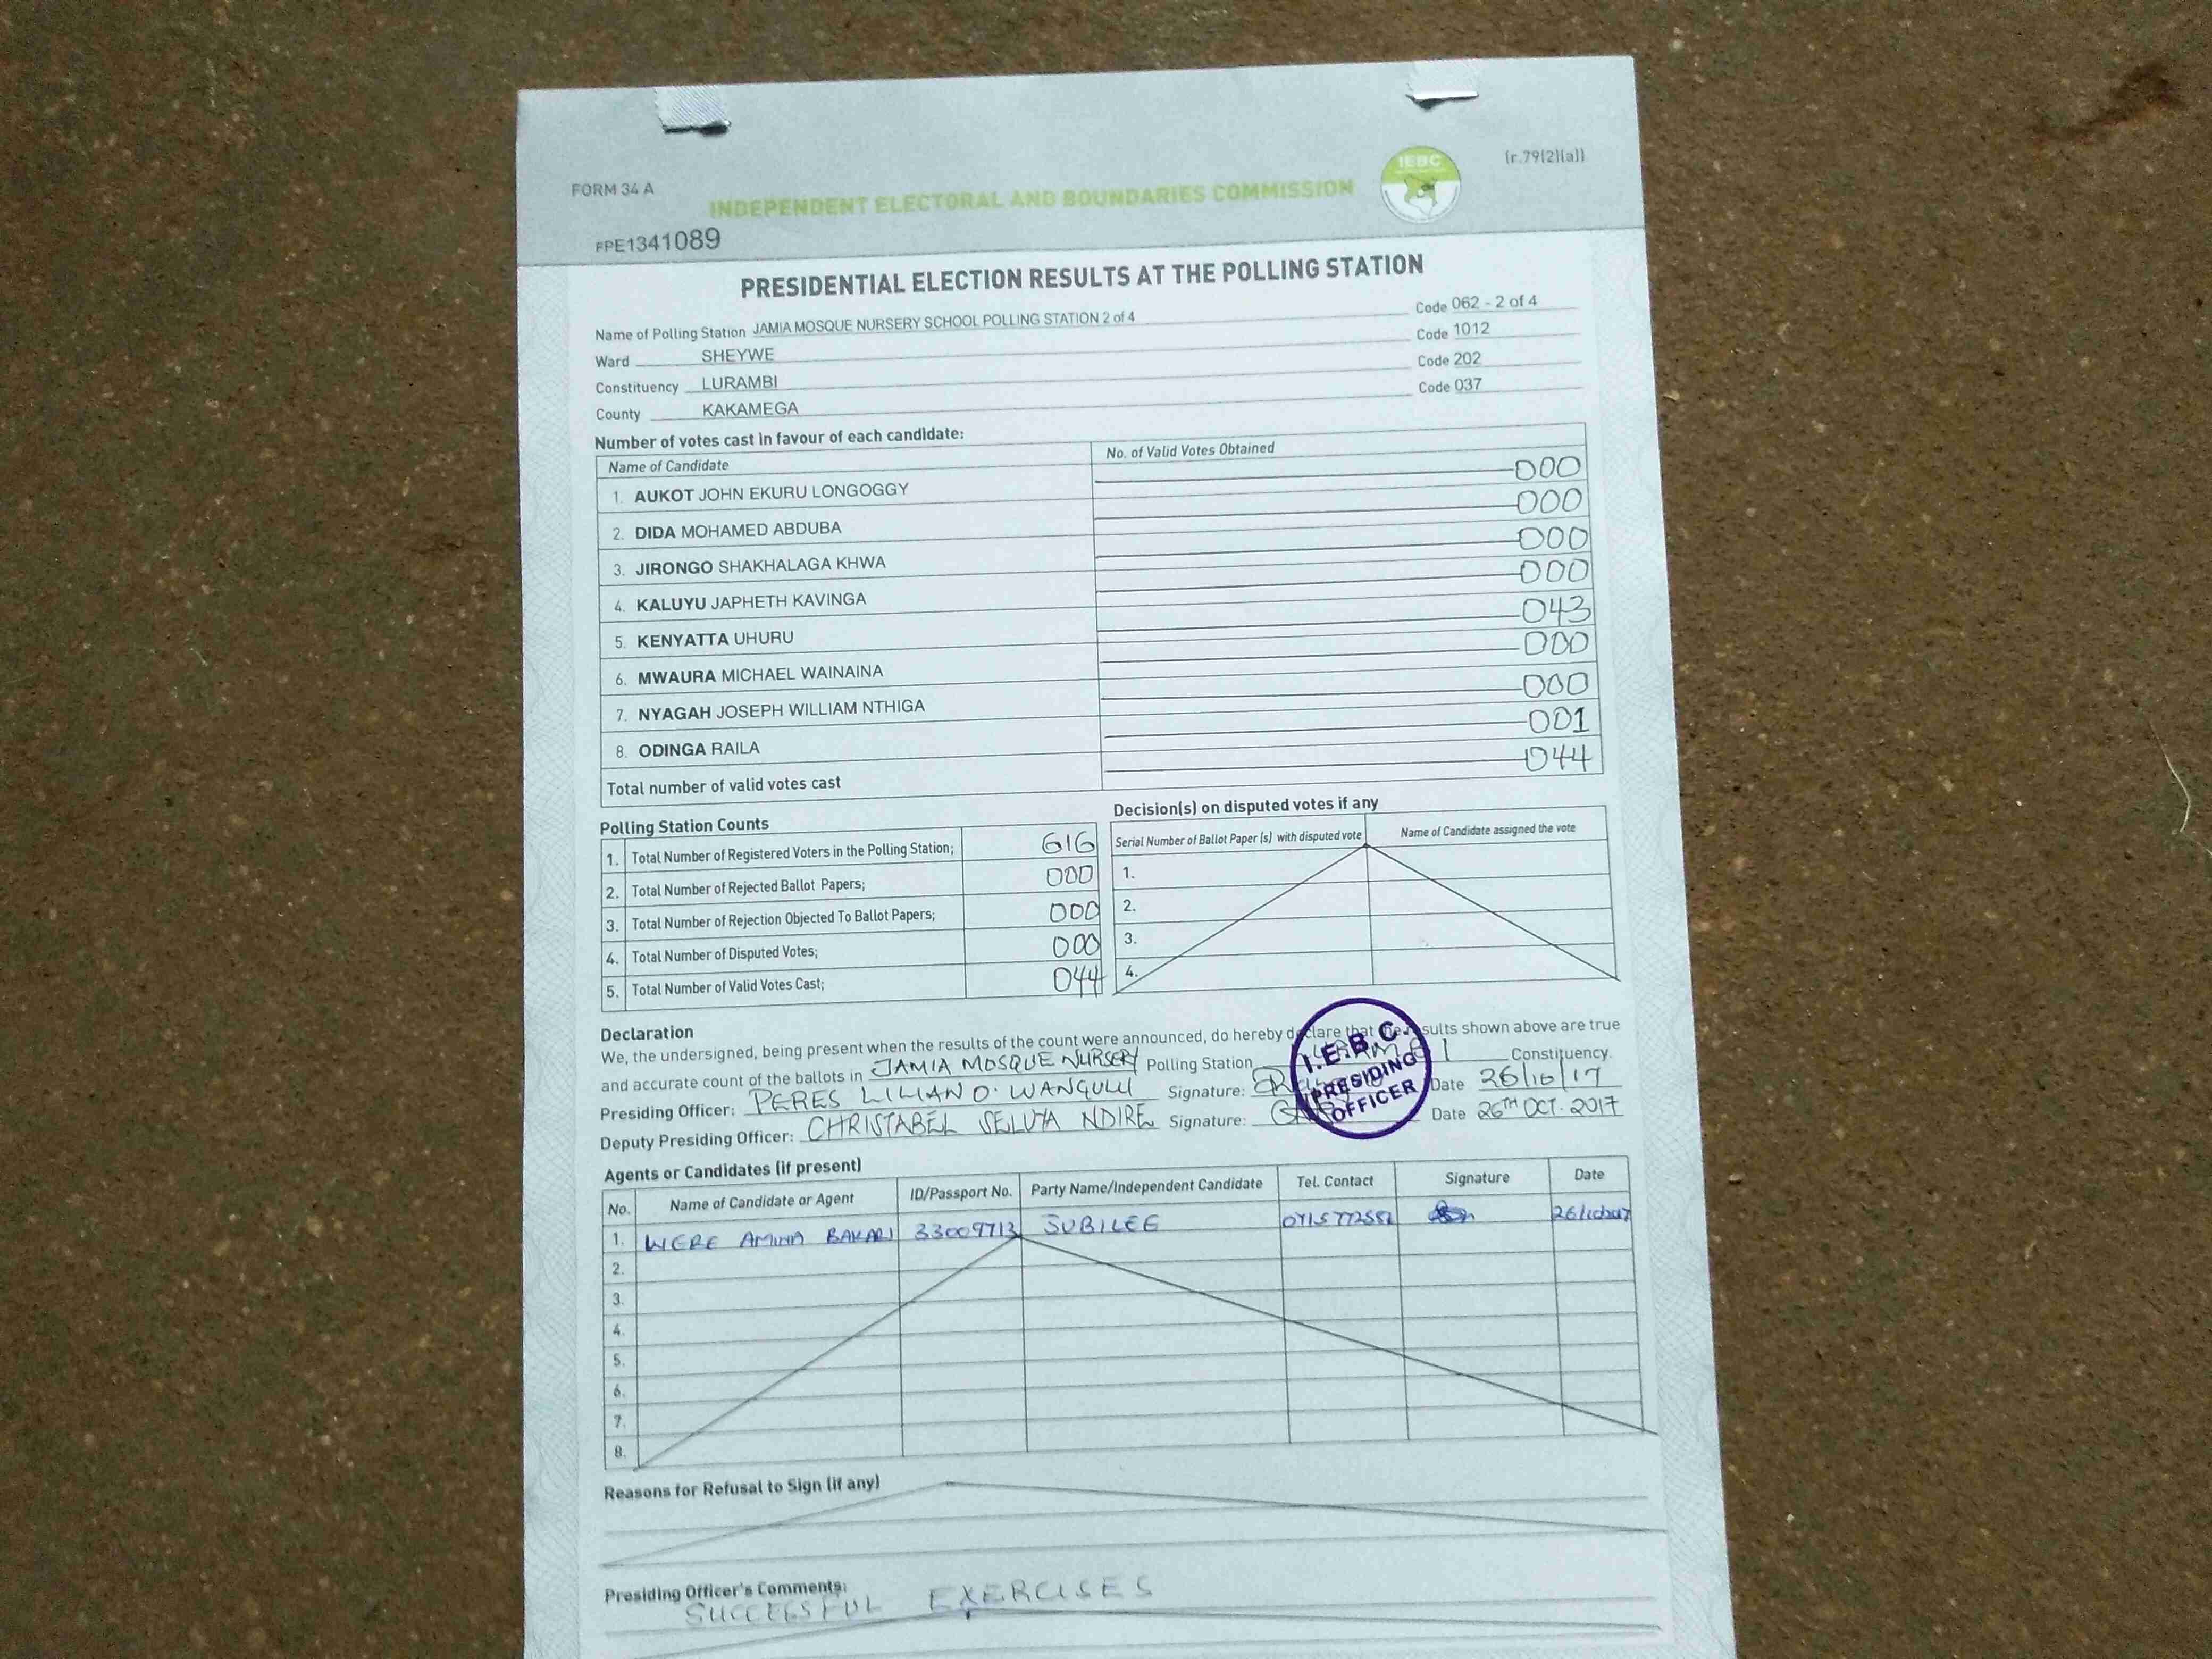 FORM 34 A
IEBC
(r.79(2)(a))
INDEPENDENT ELECTORAL AND BOUNDARIES COMMISSION
FPE1341089
PRESIDENTIAL ELECTION RESULTS AT THE POLLING STATION
Name of Polling Station JAMIA MOSQUE NURSERY SCHOOL POLLING STATION 2 of 4 Code 062 - 2 of 4
Ward SHEYWE Code 1012
Constituency LURAMBI Code 202
County KAKAMEGA Code 037
Number of votes cast in favour of each candidate:
Name of Candidate No. of Valid Votes Obtained
1. AUKOT JOHN EKURU LONGOGGY 000
2. DIDA MOHAMED ABDUBA 000
3. JIRONGO SHAKHALAGA KHWA 000
4. KALUYU JAPHETH KAVINGA 000
5. KENYATTA UHURU 043
6. MWAURA MICHAEL WAINAINA 000
7. NYAGAH JOSEPH WILLIAM NTHIGA 000
8. ODINGA RAILA 001
Total number of valid votes cast 044
Polling Station Counts
1. Total Number of Registered Voters in the Polling Station; 616
2. Total Number of Rejected Ballot Papers; 000
3. Total Number of Rejection Objected To Ballot Papers; 000
4. Total Number of Disputed Votes; 000
5. Total Number of Valid Votes Cast; 044
Decision(s) on disputed votes if any
Serial Number of Ballot Paper (s) with disputed vote Name of Candidate assigned the vote
1.
2.
3.
4.
Declaration
We, the undersigned, being present when the results of the count were announced, do hereby declare that the results shown above are true
and accurate count of the ballots in JAMIA MOSQUE NURSERY Polling Station Constituency.
Presiding Officer: PERES LILIAN O. WANGULU Signature: Date 26/10/17
Deputy Presiding Officer: CHRISTABEL SELUYA NDIRE Signature: Date 26TH OCT. 2017
I.E.B.C.
PRESIDING
OFFICER
Agents or Candidates (if present)
No. Name of Candidate or Agent ID/Passport No. Party Name/Independent Candidate Tel. Contact Signature Date
1. WERE AMINA BAKARI 33009713 JUBILEE
2.
3.
4.
5.
6.
7.
8.
Reasons for Refusal to Sign (if any)
Presiding Officer's Comments:
SUCCESSFUL EXERCISES